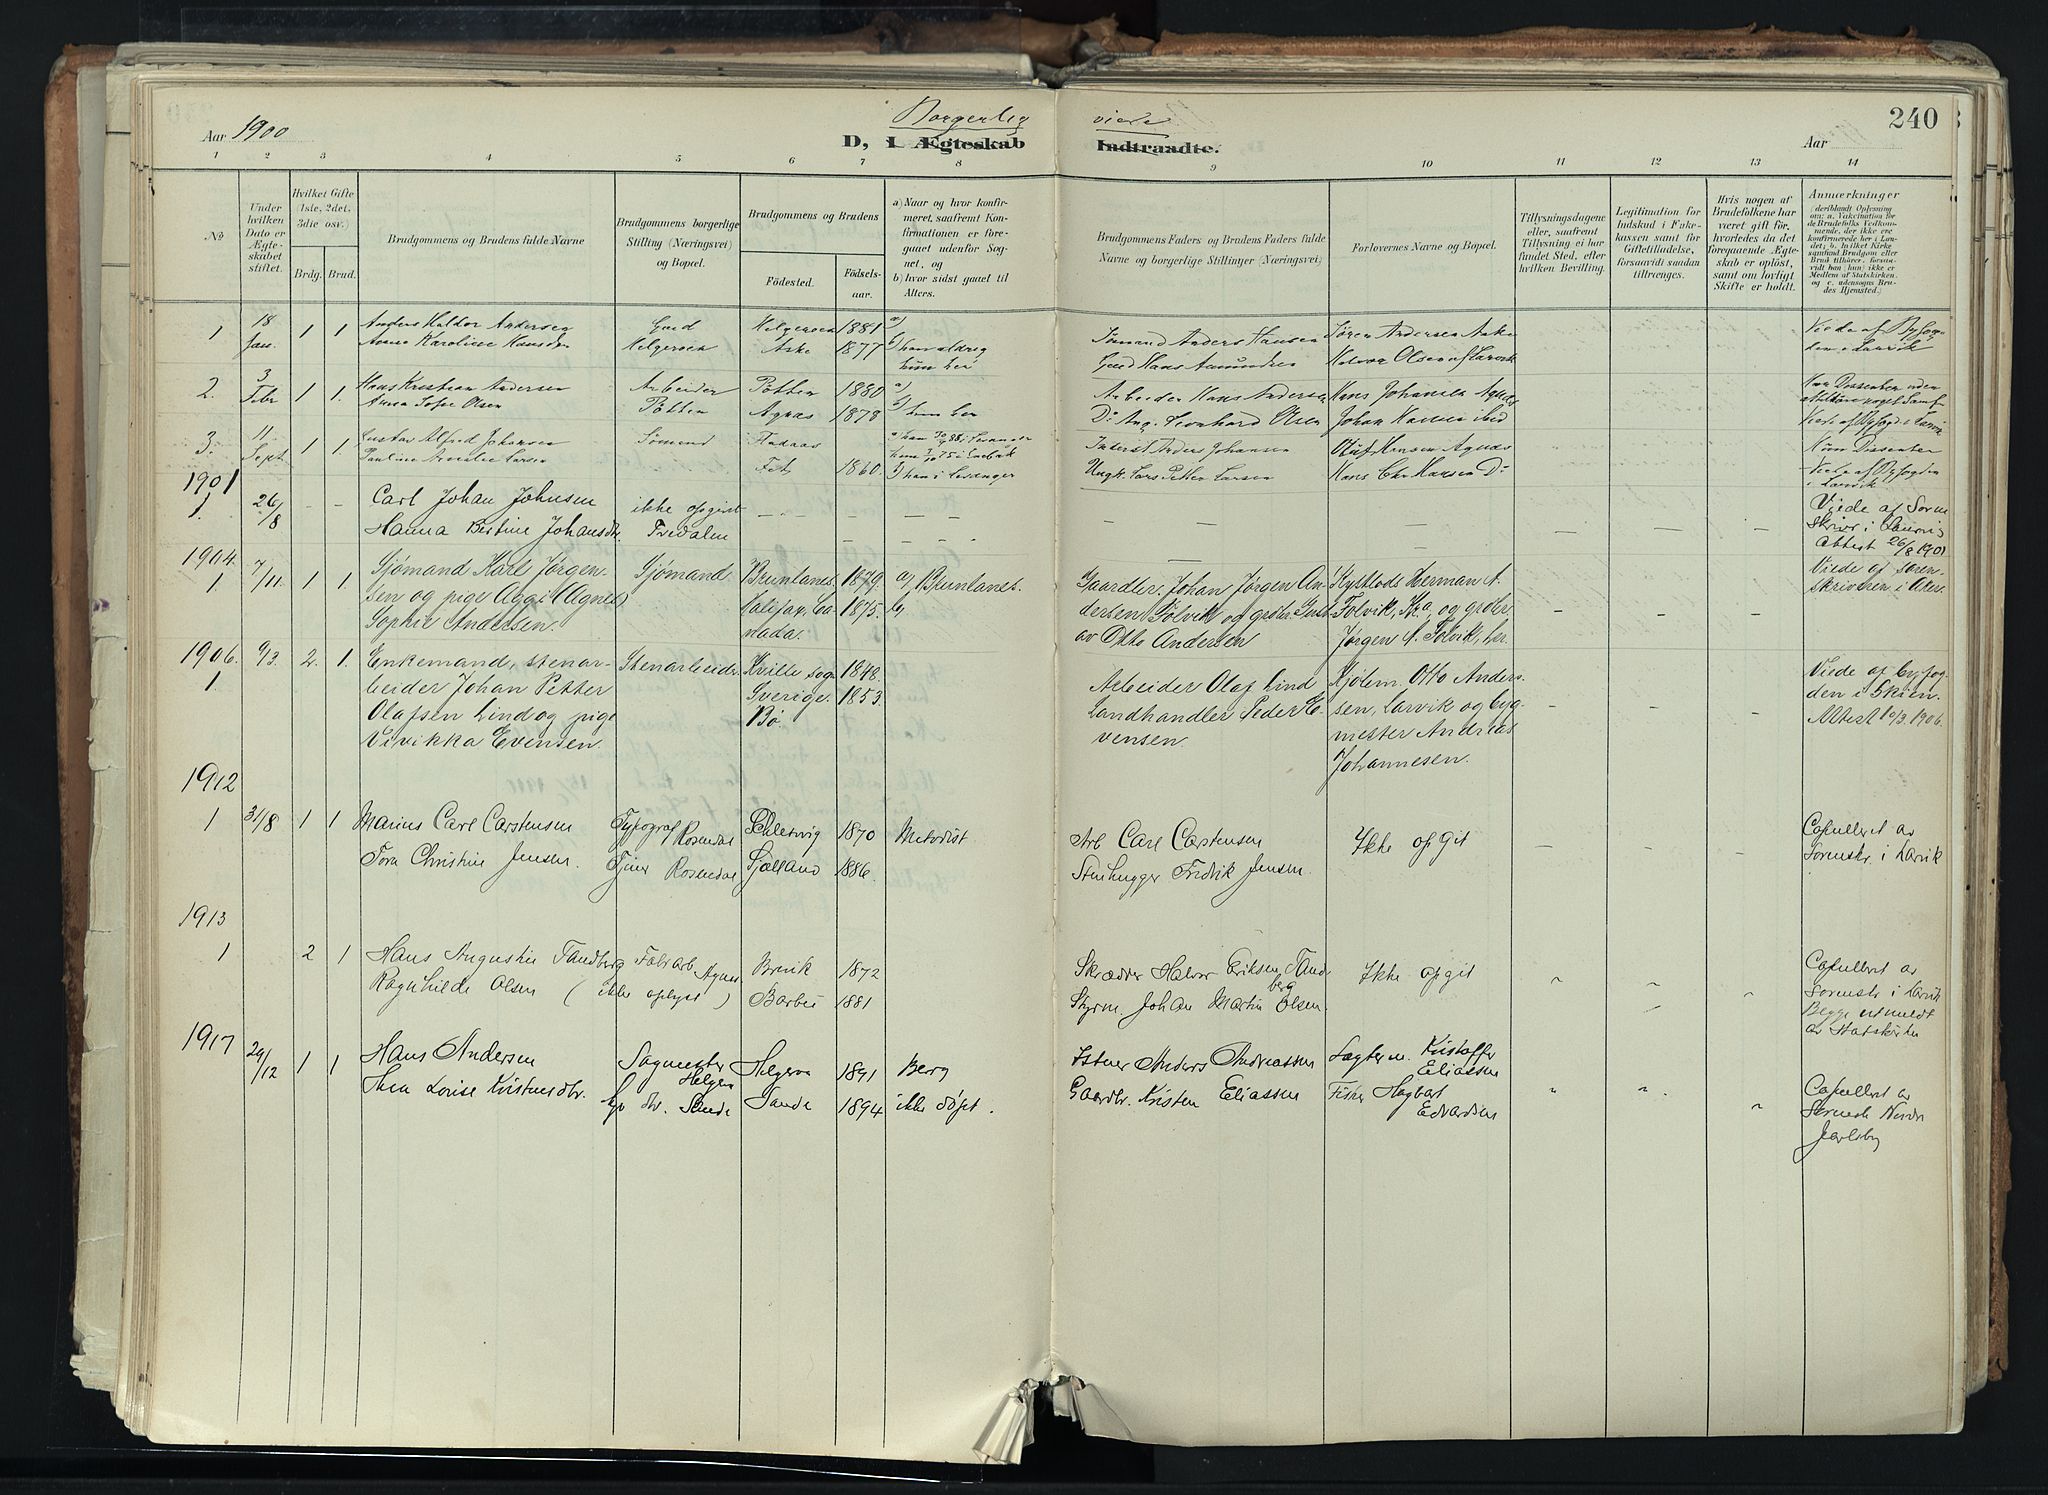 Aar 1900
Borgerlig viede
240
D, I. Ægteskab Indtraadte.
Aar
1 2 3 4 5 6 7 8 9 10 11 12 13 14
No
Under hvilken Dato er Ægteskabet stiftet.
Hvilket Gifte (1ste, 2det, 3die osv.)
Brdg. Brud.
Brudgommens og Brudens fulde Navne
Brudgommens borgerlige Stilling (Næringsvei) og Bopæl.
Brudgommens og Brudens
Fødested. Fødselsaar.
a) Naar og hvor konfirmeret, saafremt Konfirmationen er foregaaet udenfor Sognet, og
b) hvor sidst gaaet til Alters.
Brudgommens Faders og Brudens Faders fulde Navne og borgerlige Stillinger (Næringsvei)
Forlovernes Navne og Bopæl.
Tillysningsdagene eller, saafremt Tillysning ei har fundet Sted, efter hvilken Bevilling.
Legitimation for Indskud i Enkekassen samt for Giftetilladelse, forsaavidt saadan tiltrænges.
Hvis nogen af Brudefolkene har været gift før, hvorledes da det foregaaende Ægteskab er opløst, samt om lovligt Skifte er holdt.
Anmærkninger
1 18 Jan. 1 1
Anders Haldor Andersen
Anna Karoline Hansdtr
Gaard Helgeroen
Helgeroen 1881
Aske 1877
a)
b) han aldrig
hun her
Sømand Anders Hansen
Gaard Hans Amundsen
Søren Andersen Aske
Halvor Olsen af Larvik
Viede af Byfogden i Larvik
2. 3 Febr 1 1.
Hans Kristian Andersen
Anna Sofie Olsen
Arbeider
Pøtten
Pøtten 1880
Agnæs 1878
a)
b) hun her
Arbeider Hans Andersen
Do Aug. Leonhard Olsen
Hans Johansen Agnæs
Johan Hansen ibid
Viede af Byfogd i Larvik
3. 11 Sept 1 1
Gustav Alfred Johansen
Pauline Amalie Larsen
Sømand
Fet 1860.
b) han i Levanger
Inderst Anders Johansen
Ungk. Lars Petter Larsen
Oluf Hansen Agnæs
Hans Chr Hansen Do
Hun Dissenter
Viede af Byfogden
i Larvik
1901
1. 26/8 - -
Carl Johan Johnsen
Hanna Bertine Johansdtr.
ikke opgivet
Fredalen
Viede af Sorenskriver i Laurvig
Attest 26/8 1901
1904.
1. 7/11. 1 1
Sjømand Karl Jørgensen og pige Aggi (Agnes)
Sophie Andersen.
Sjømand.
Brunlanes 1879.
Halifax, Canada. 1875.
a) Brunlanes.
b)
Gaardbr. Johan Jørgen Andersen Følvik og grosr. Gustav Otto Andersen
Kystlods Herman A.
Følvik, Kra. og grosr.
Jørgen A. Følvik, her.
Viede af sorenskriveren i Aker.
1906.
1 9/3. 2. 1.
Enkemand, stenarbeider Johan Petter
Olafsen Lind og pige
Vivikka Evensen.
Stenarbeidr.
Kville sogn 1848.
Sverige. 1853.
Bø.
Arbeider Olaf Lind
Landhandler Peder Evensen.
Kjølem. Otto Andersen, Larvik og bygmester Andreas
Johannesen.
Viede af byfogden i Skien.
Attest 10/3. 1906.
1912
1 31/8 1 1
Marius Carl Carstensen
Tora Christine Jensen.
Typograf Rosendal
Tjener Rosendal
Schleswig 1870
Sjælland 1886.
Metodist
Arb Carl Carstensen
Stenhugger Fredrik Jensen.
Ikke opgit
Copulleret av
Sorenskr. i Larvik
1913
1 2 1
Hans Augustin Tandberg
Ragnhilde Olsen (ikke oplyst)
Fabr arb. Agnes
Brevik 1872
Barbu 1881
Skrædder Halvor Eriksen Tandberg
Styrm. Johan Martin Olsen.
Ikke opgit
Copulleret av
Sorenskr i Larvik
Begge utmeldt
av Statskirken
1917
29/12 1 1
Hans Andersen
Thea Lovise Kristensdtr.
Sagmester Helgeroa
Gp dtr. Sande
Helgeroa 1891
Sande 1894
Berg
ikke døpt.
Anders Andreassen
Gaardbr. Kristen Eliassen
Kristoffer Eliassen
Fisker Hagbart Edvardsen
Copulleret av
Sorensk Nordre
Jarlsberg